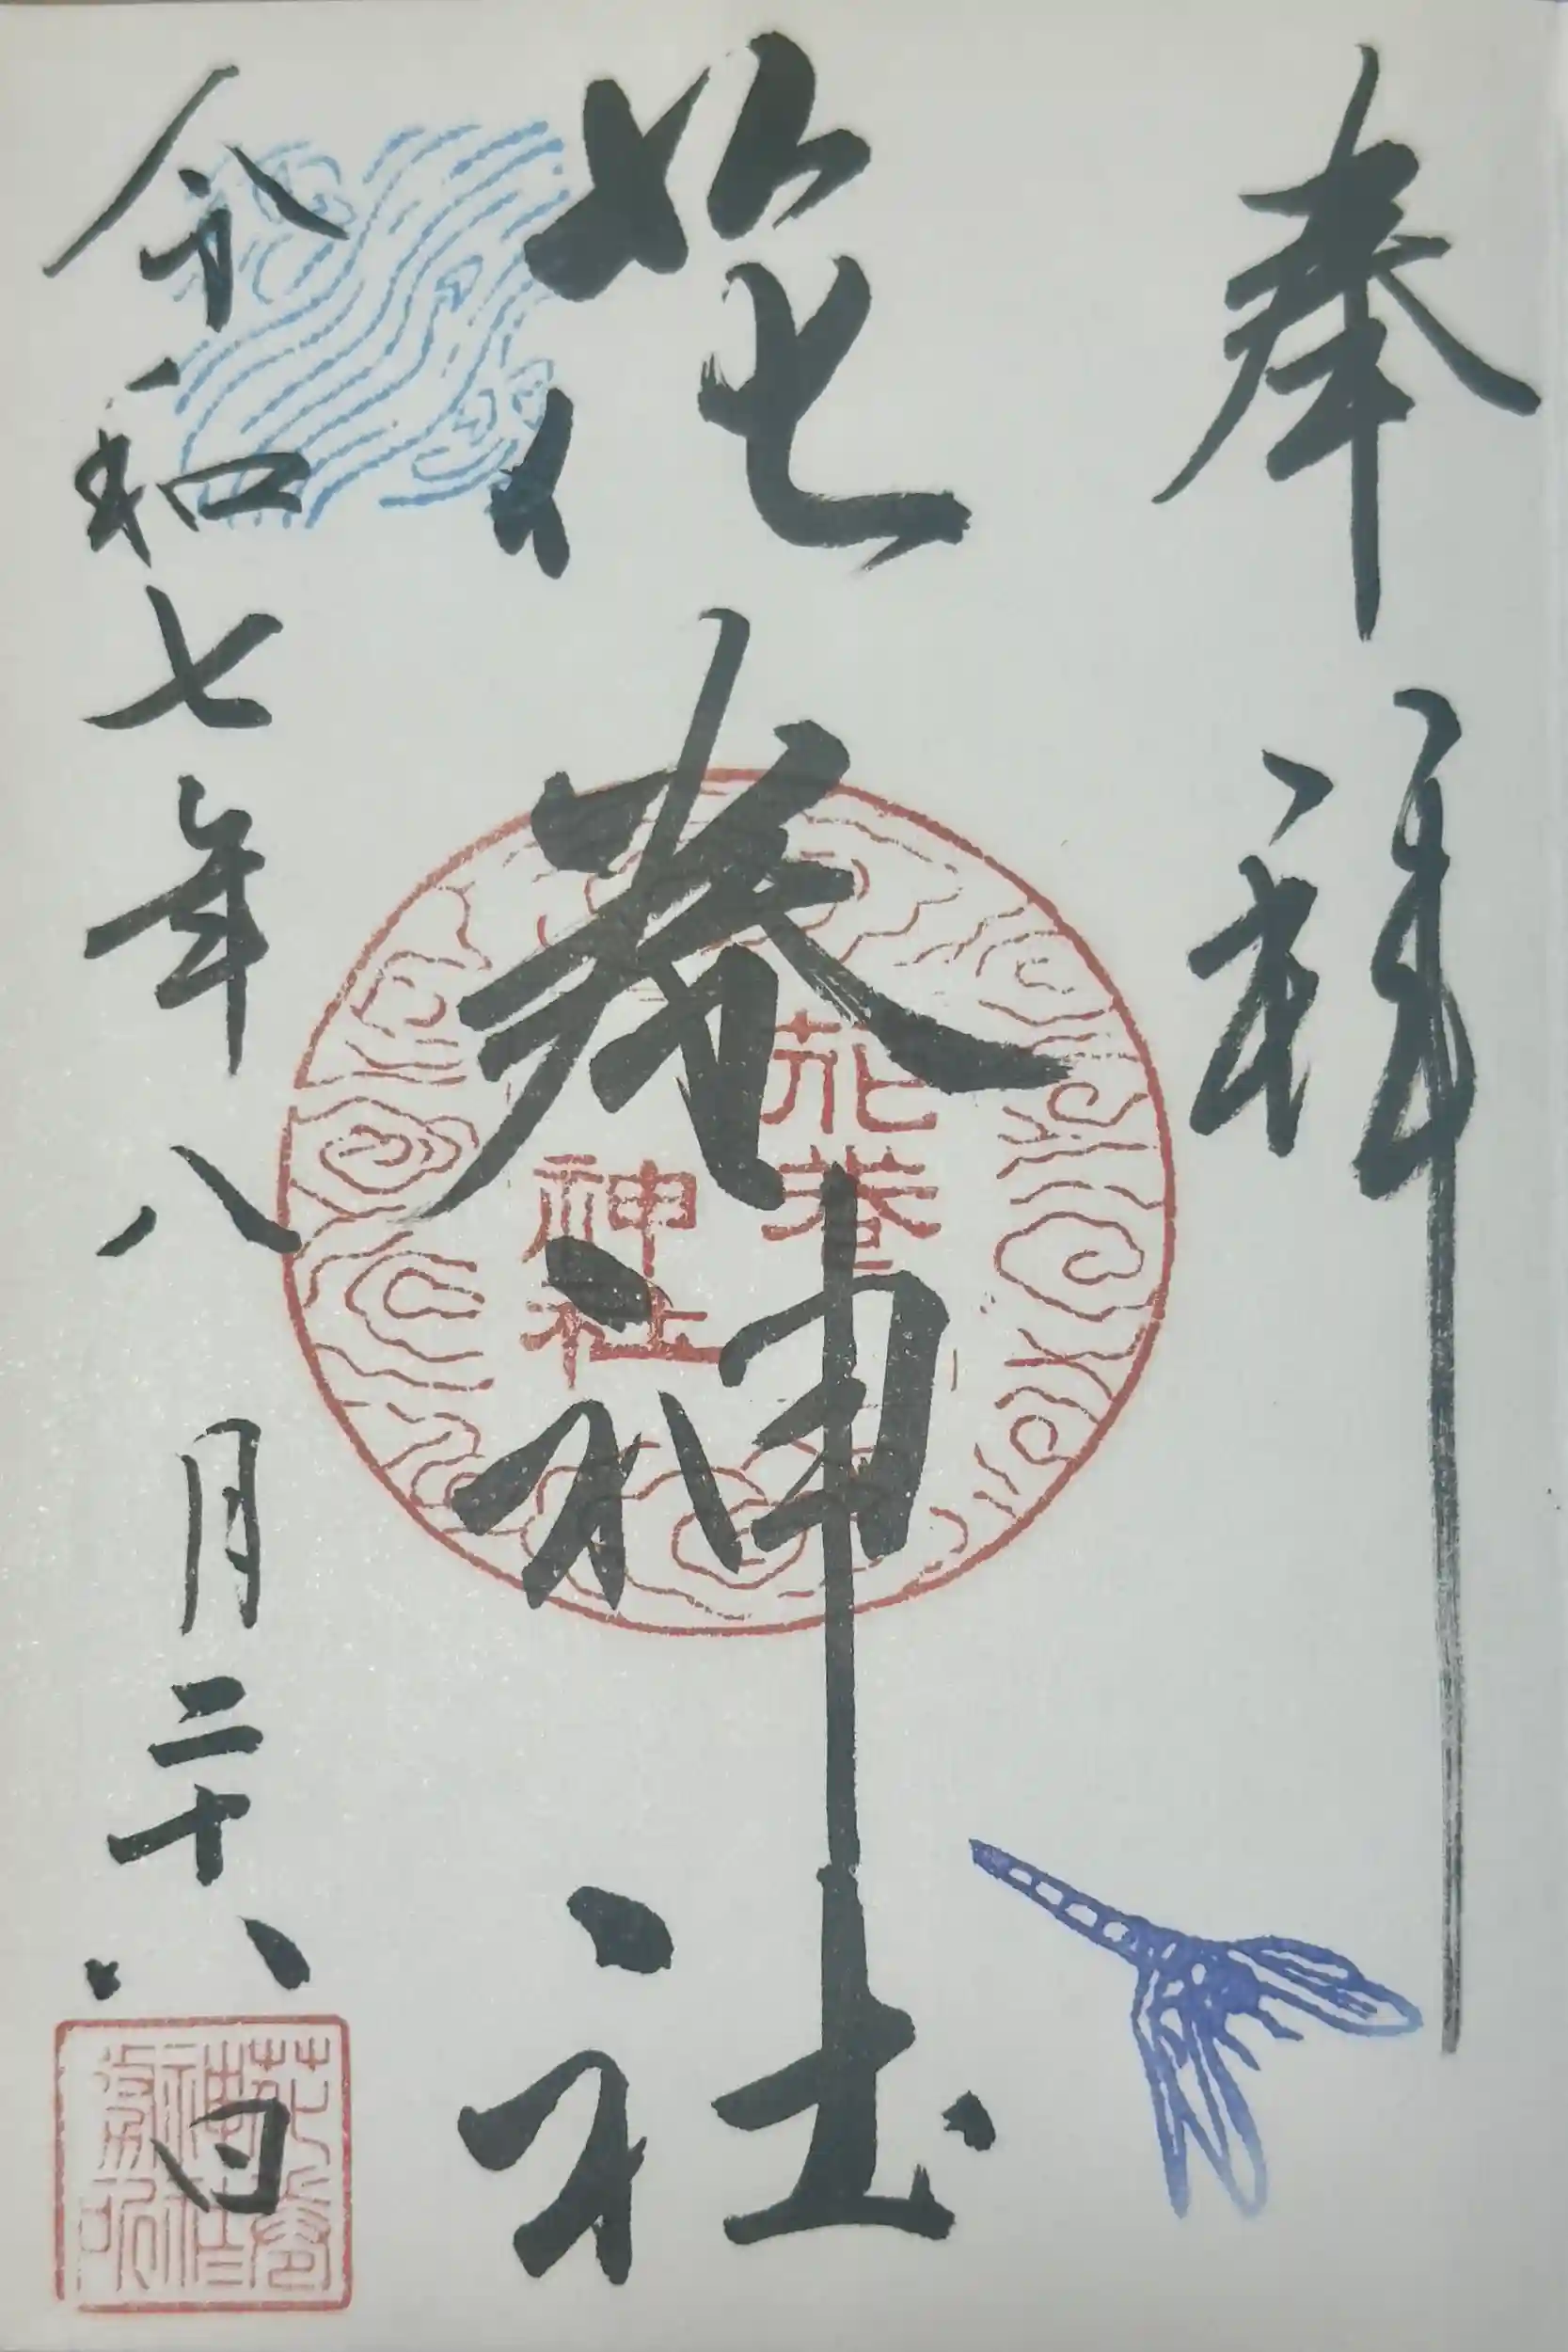 奉拝
花巻神社
令和七年八月二十八日
花巻
神社
花巻
神社
務所